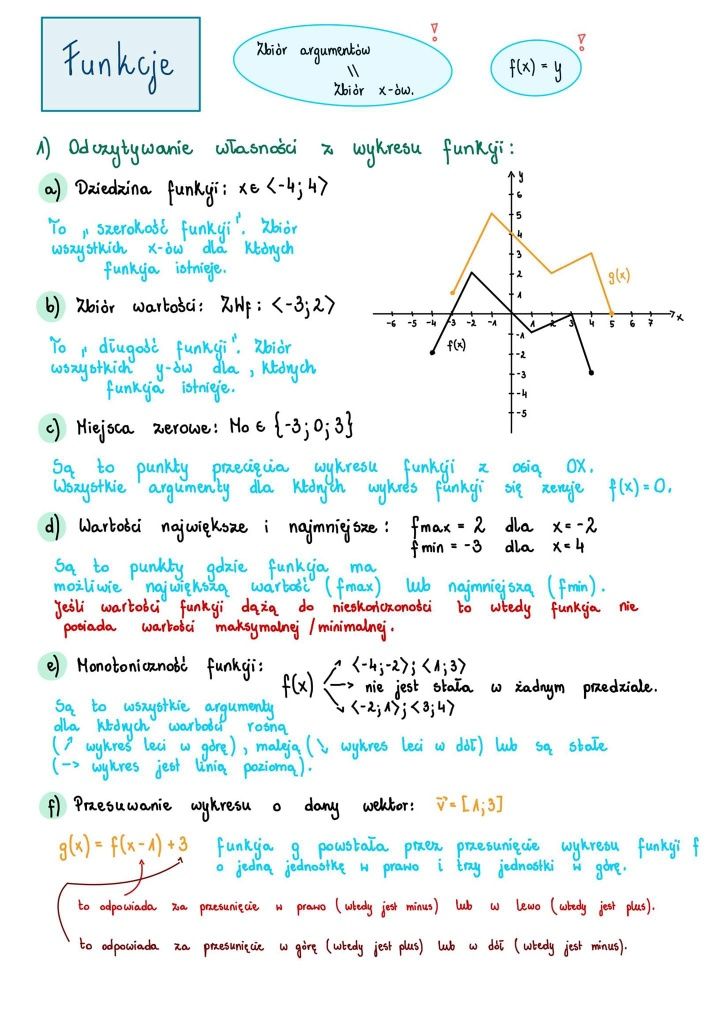 Funkcje
Zbiór argumentów
=
Zbiór x-ów.
!
f(x) = y
!
1) Odczytywanie własności z wykresu funkcji:
a) Dziedzina funkcji: x∈ <-4;4>
To „szerokość funkcji”. Zbiór
wszystkich x-ów dla których
funkcja istnieje.
b) Zbiór wartości: ZWf: <-3;2>
To „długość funkcji”. Zbiór
wszystkich y-ów dla, których
funkcja istnieje.
y
6
5
4
3
2
1
-6 -5 -4 -3 -2 -1 1 2 3 4 5 6 7 x
-1
-2
-3
-4
-5
g(x)
f(x)
c) Miejsca zerowe: Mo ∈ {-3;0;3}
Są to punkty przecięcia wykresu funkcji z osią OX.
Wszystkie argumenty dla których wykres funkcji się zeruje f(x)=0.
d) Wartości największe i najmniejsze: fmax = 2 dla x=-2
fmin = -3 dla x=4
Są to punkty gdzie funkcja ma
możliwie największą wartość (fmax) lub najmniejszą (fmin).
Jeśli wartości funkcji dążą do nieskończoności to wtedy funkcja nie
posiada wartości maksymalnej/minimalnej.
e) Monotoniczność funkcji:
f(x) ↗ <-4;-2>; <1;3>
→ nie jest stała w żadnym przedziale.
↘ <-2;1>; <3;4>
Są to wszystkie argumenty
dla których wartości rosną
(↗ wykres leci w górę), maleją (↘ wykres leci w dół) lub są stałe
(-> wykres jest linią poziomą).
f) Przesuwanie wykresu o dany wektor: v⃗=[1;3]
g(x) = f(x-1)+3 funkcja g powstała przez przesunięcie wykresu funkcji f
o jedną jednostkę w prawo i trzy jednostki w górę.
to odpowiada za przesunięcie w prawo (wtedy jest minus) lub w lewo (wtedy jest plus).
to odpowiada za przesunięcie w górę (wtedy jest plus) lub w dół (wtedy jest minus).